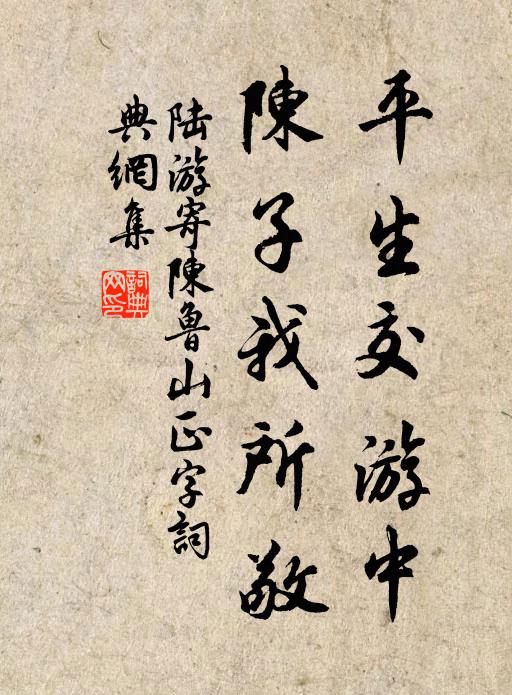 平生交游中
陳子我所敬
陆游寄陳魯山正字詞
典網集
詞典
网印